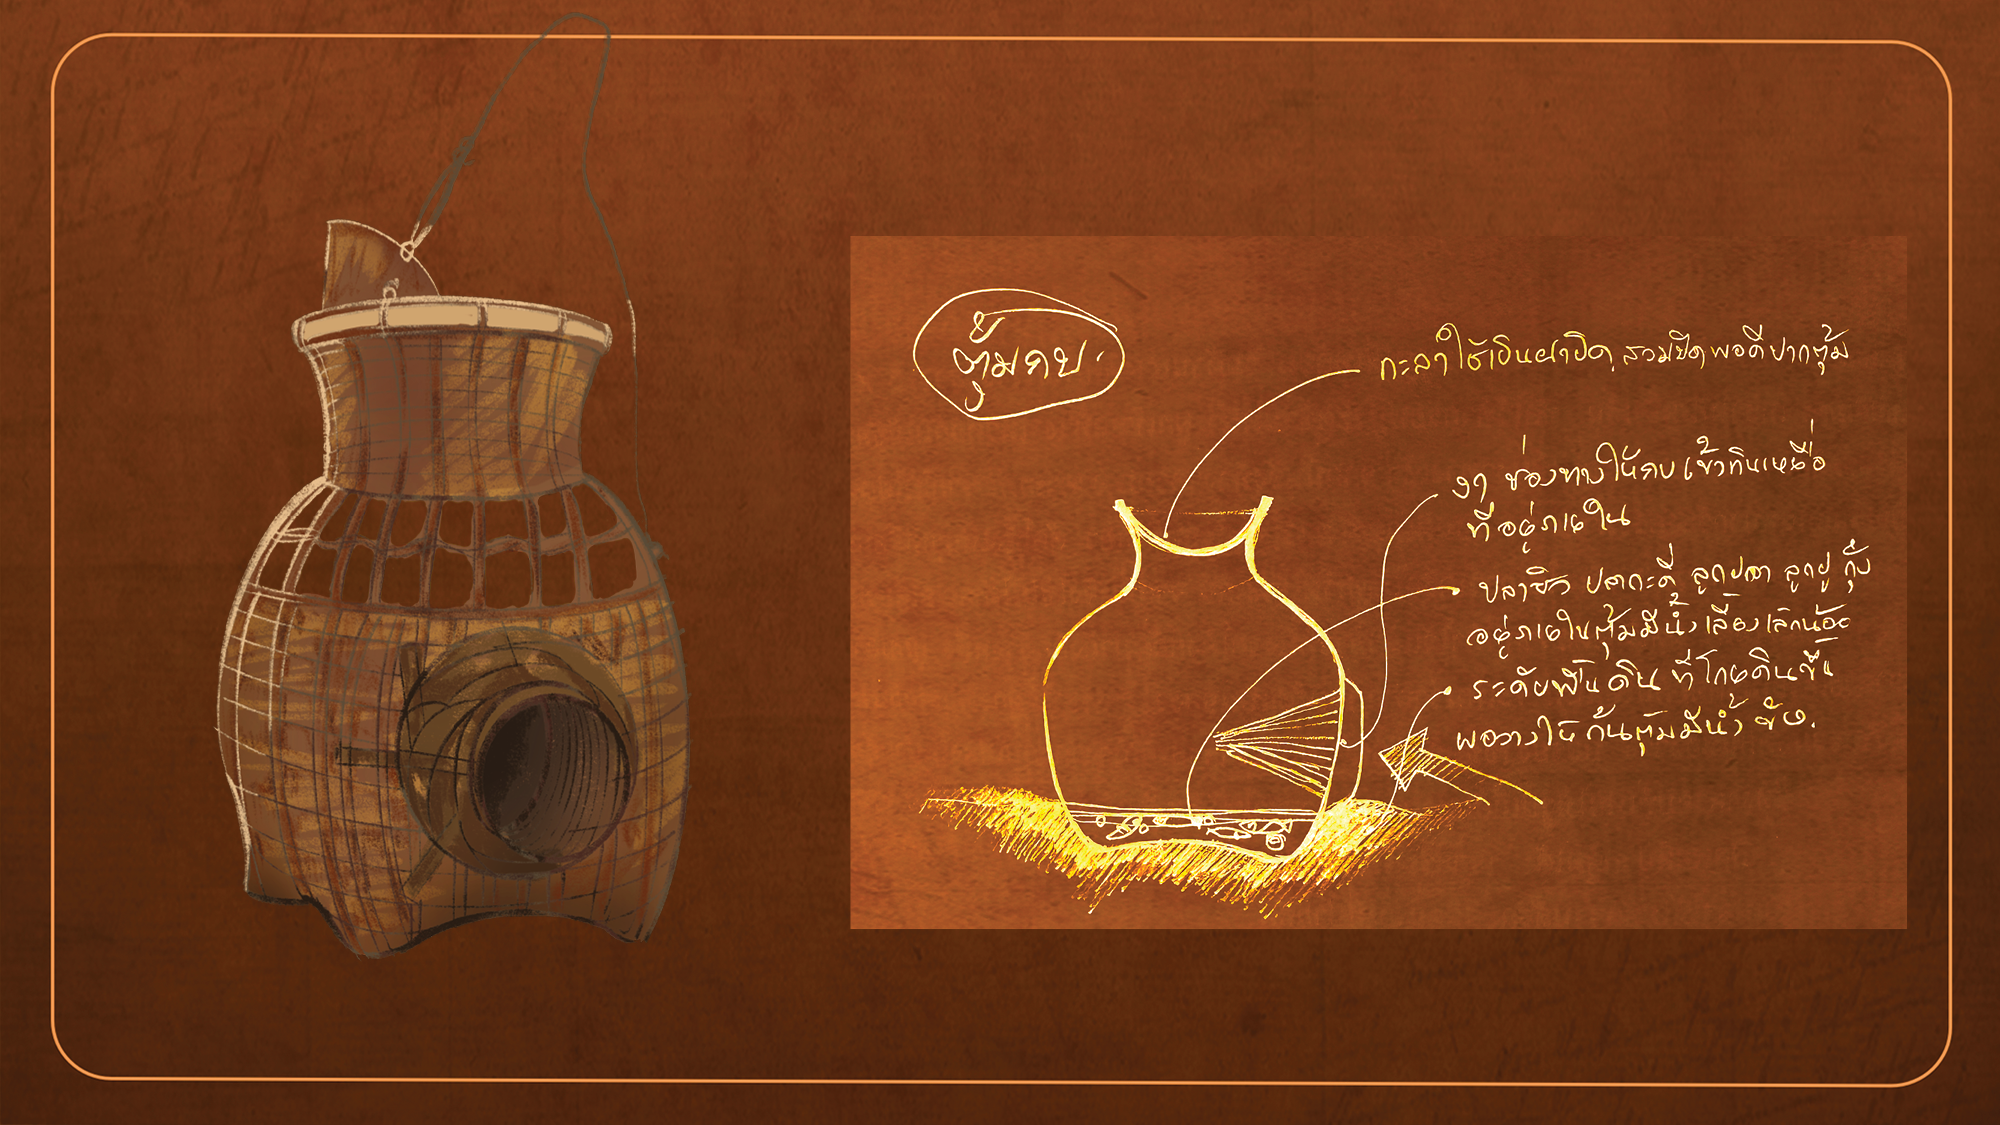 ตุ้มกบ
กะลาใช้เป็นฝาปิด สวมยึดพอดีปากตุ้ม
งา ช่องทางให้กบเข้ากินเหยื่อ
ที่อยู่ภายใน
ปลาซิว ปลากระดี่ ลูกปลา ลูกปู กุ้ง
อยู่ภายในตุ้มมีน้ำเลี้ยงเล็กน้อย
ระดับพื้นดิน ที่โกยดินขึ้น
พอวางให้ก้นตุ้มมีน้ำขัง.